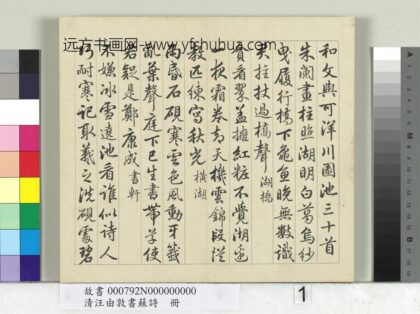 远方书画网-www.yfshuhua.com
和文與可洋川園池三十首
朱闌畫柱照湖明白葛烏紗
曳履行橋下龜魚晚無數識
君拄杖過橋聲 湖橋
貪看翠蓋擁紅粧不覺湖邊
一夜霜卷却天機雲錦段從
教匹練寫秋光 橫湖
雨昏石硯寒雲色風動牙籤
亂葉聲庭下已生書帶草使
君疑是鄭康成 書軒
不嫌冰雪遶池看誰似詩人
巧耐寒記取羲之洗硯處碧
故書 000792N000000000
清汪由敦書蘇詩 冊
1